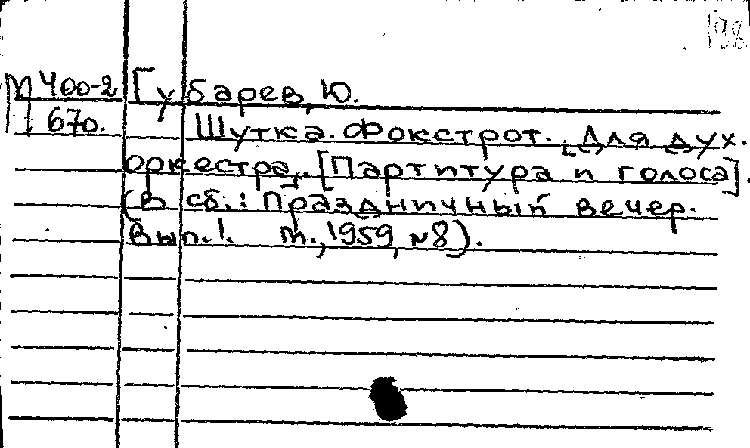 М 400-2 Губарев, Ю.
670. Шутка. Фокстрот. [Для дух.
оркестра]. [Партитура и голоса].
(В сб.: Праздничный вечер.
Вып. 1. М., 1959, №8).